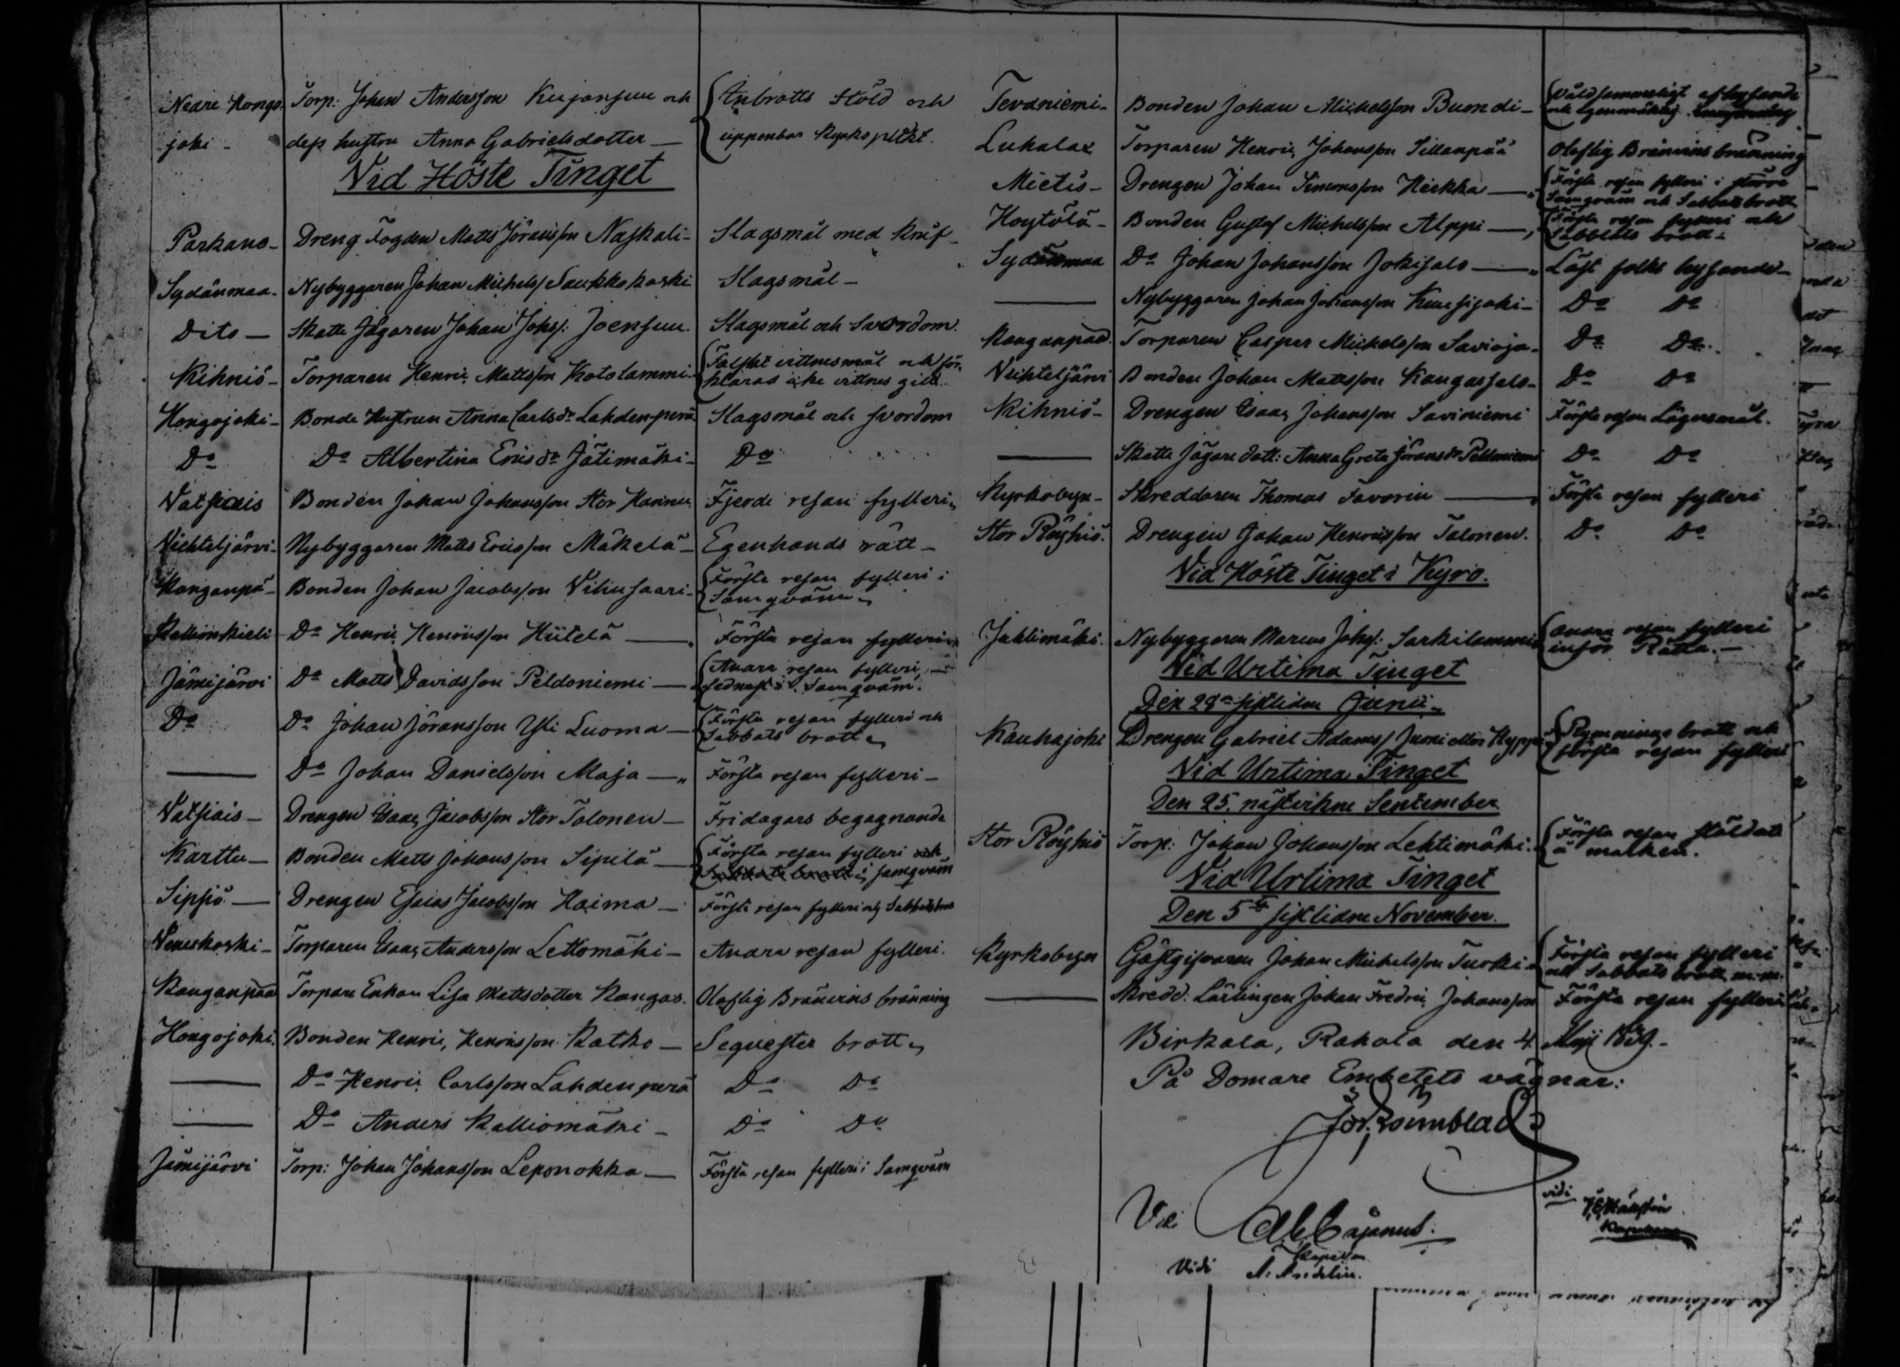 Nedre Hongo Torp: Johan Andersson Kujansuu och Inbrotts Stöld och
joki - dess hustru Anna Gabrielsdotter — uppenbar Kyrkoplikt.
Vid Höste Tinget
Parkano - Dreng Fogden Matts Jöransson Naskali - Slagsmål med knif -
Sydänmaa - Nybyggaren Johan Michelss Saukkokoski Slagsmål -
Dito — Skatte Jägaren Johan Johss: Joensuu Slagsmål och svordom.
Kihniö - Torparen Henric Mattsson Kotolammi - Falskt vittnesmål och för
klaras icke vittnes gill
Hongojoki - Bonde Hustrun Anna Carlsdr Lahdenperä Slagsmål och svordom
Do Do Albertina Ericsdr Jätimäki - Do
Vatsiais Bonden Johan Johansson Stor Hannu Fjerde resan fylleri
Vichteljärvi - Nybyggaren Matts Ericsson Mäkelä - Egenhands rätt -
Kanganpä - Bonden Johan Jacobsson Vilusaari - Första resan fylleri i
Samqväm
Do Henric Henricsson Hiitelä — Första resan fylleri
Jämijärvi Do Matts Davidsson Peldoniemi — Andra resan fylleri,
sednast i Samqväm.
Do Do Johan Jöransson Yli Luoma — Första resan fylleri och
Sabbats brott
— Do Johan Danielsson Maja — Första resan fylleri -
Vatsiais - Drengen Isaac Jacobsson Stor Tolonen - Fridagars begagnande
Karttu - Bonden Matts Johansson Sipilä — Första resan fylleri
i samqväm
Sippiö — Drengen Esaias Jacobsson Haima - Första resan fylleri och Sabbatsbrott
Veneskoski - Torparen Isaac Andersson Lettomäki - Andra resan fylleri.
Kanganpää Torpare Enkan Lisa Mattsdotter Kangas. Olaflig Bränvins bränning
Hongojoki. Bonden Henric Henricsson Ratko - Sequester brott
— Do Henric Carlsson Lahdenperä Do Do
— Do Anders Kalliomäki - Do Do
Jämijärvi Torp: Johan Johansson Leponokka — Första resan fylleri i Samqväm
Tevaniemi - Bonden Johan Michelsson Buondi - Våldsammeligt
Luhalax Torparen Henric Johansson Sillanpää Olaflig Bränvins bränning
Mietis - Drengen Johan Simonsson Heikka — Första resan fylleri i större
Samqväm och Sabbats brott
Höytölä - Bonden Gustof Michelsson Alppi — Första resan fylleri och
Sabbats brott -
Sydänmaa Do Johan Johansson Jokisalo — Löst folks hysande -
— Nybyggaren Johan Johansson Kuusijoki - Do Do
Kanganpää Torparen Casper Michelsson Savioja - Do Do
Vichteljärvi Bonden Johan Mattsson Kangassalo - Do Do
Kihniö - Drengen Isaac Johansson Saviniemi Första resan Lägersmål.
— Skatte Jägare dott: Anna Greta Jöransdr Peldoniemi Do Do
Kyrkobyn - Skreddaren Thomas Favorin — Första resan fylleri
Stor Röyhiö. Drengen Johan Henricsson Tolonen. Do Do
Vid Höste Tinget i Kyro.
Jaklimäki. Nybyggaren Marcus Johss: Sarkilammi Andra resan fylleri
inför Rätta. —
Vid Urtima Tinget
Den 28de sistlidne Junii
Kauhajoki Drengen Gabriel Adamss Jussi eller Hyppi Rymnings brott och
första resan fylleri
Vid Urtima Tinget
Den 25. nästvikne September
Stor Röyhiö Torp: Johan Johansson Lehtimäki. Första resan stöld
å marken.
Vid Urtima Tinget
Den 5te sistlidne November.
Kyrkobyn Gästgifvaren Johan Michelsson Turki - Första resan fylleri
och Sabbats brott m.m.
— Skredd. Lärlingen Johan Fredric Johansson Första resan fylleri
Birkala, Rakola den 4 Maji 1839.
På Domare Embetets vägnar:
Vidi
Cajanus.
vidi
Vidi